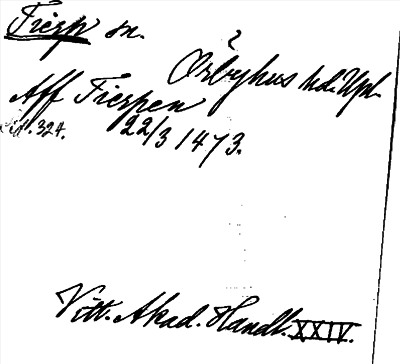 Tierp sn.
Örbyhus hd. Upl.
Aff Tierpen
sid. 324. 22/3 1473.
Vitt. Akad. Handl. XXIV.